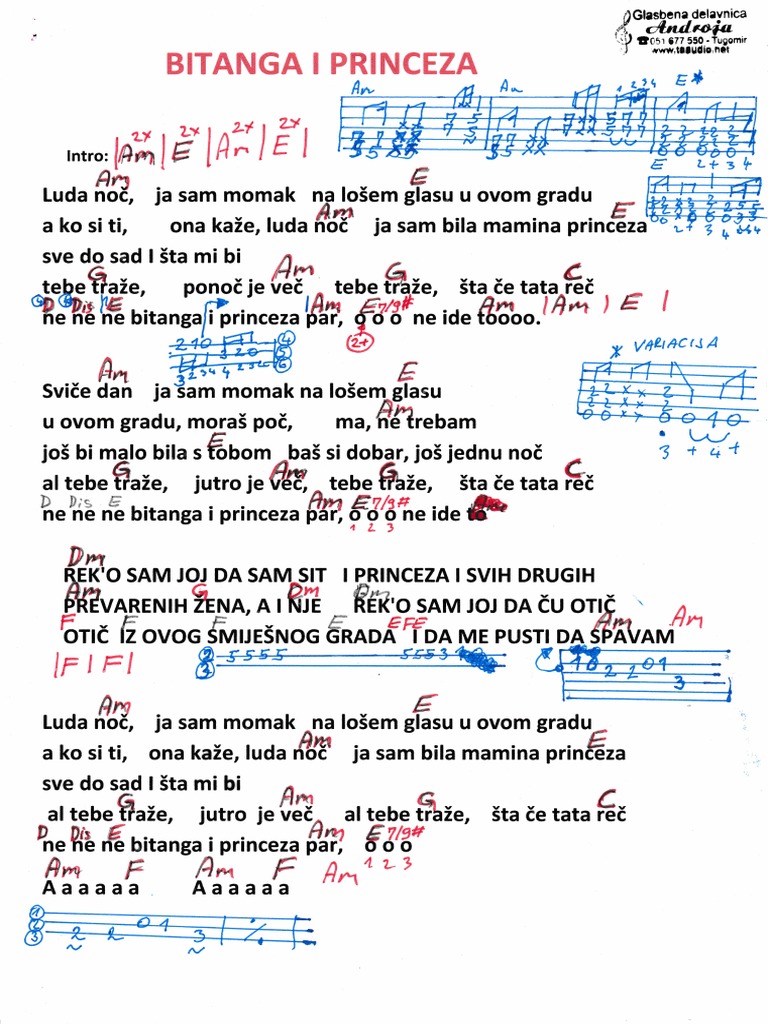 Glasbena delavnica
Androja
☎051 677 550 - Tugomir
www.tasudio.net
BITANGA I PRINCEZA
Am Am E*
Intro: | Am 2x | E 2x | Am 2x | E 2x |
E 2 + 3 4
Am E
Luda noč, ja sam momak na lošem glasu u ovom gradu
Am E
a ko si ti, ona kaže, luda noč ja sam bila mamina princeza
sve do sad I šta mi bi
G Am G C
tebe traže, ponoč je več tebe traže, šta če tata reč
D Dis E Am E7/9# Am | Am | E |
ne ne ne bitanga i princeza par, o o o ne ide toooo.
2+
* VARIACIJA
Am E
Sviče dan ja sam momak na lošem glasu
Am
u ovom gradu, moraš poč, ma, ne trebam
E
još bi malo bila s tobom baš si dobar, još jednu noč
G Am G C
al tebe traže, jutro je več, tebe traže, šta če tata reč
D Dis E Am E7/9#
ne ne ne bitanga i princeza par, o o o ne ide to
1 2 3
3 + 4 +
Dm
REK'O SAM JOJ DA SAM SIT I PRINCEZA I SVIH DRUGIH
Am G Dm Dm
PREVARENIH ŽENA, A I NJE REK'O SAM JOJ DA ĆU OTIČ
F E F E EFE Am Am
OTIČ IZ OVOG SMIJEŠNOG GRADA I DA ME PUSTI DA SPAVAM
| F | F |
5555 5553 1
Am E
Luda noč, ja sam momak na lošem glasu u ovom gradu
Am E
a ko si ti, ona kaže, luda noč ja sam bila mamina princeza
sve do sad I šta mi bi
G Am G C
al tebe traže, jutro je več al tebe traže, šta če tata reč
D Dis E Am E7/9#
ne ne ne bitanga i princeza par, o o o
1 2 3
Am F Am F Am
A a a a a a A a a a a a
1
2 0 1
3 2 2 3